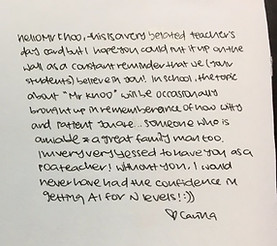 hello Mr Khoo, this is a very belated teacher's
day card but I hope you could put it up on the
wall as a constant reminder that we (your
students) believe in you! In school, the topic
about "Mr Khoo" will be occasionally
brought up in rememberance of how witty
and patient you are... someone who is
amiable & a great family man too.
Im very very blessed to have you as a
POA teacher! Without you, I would
never have had the confidence in
getting A1 for N levels! :))
♡ Carina